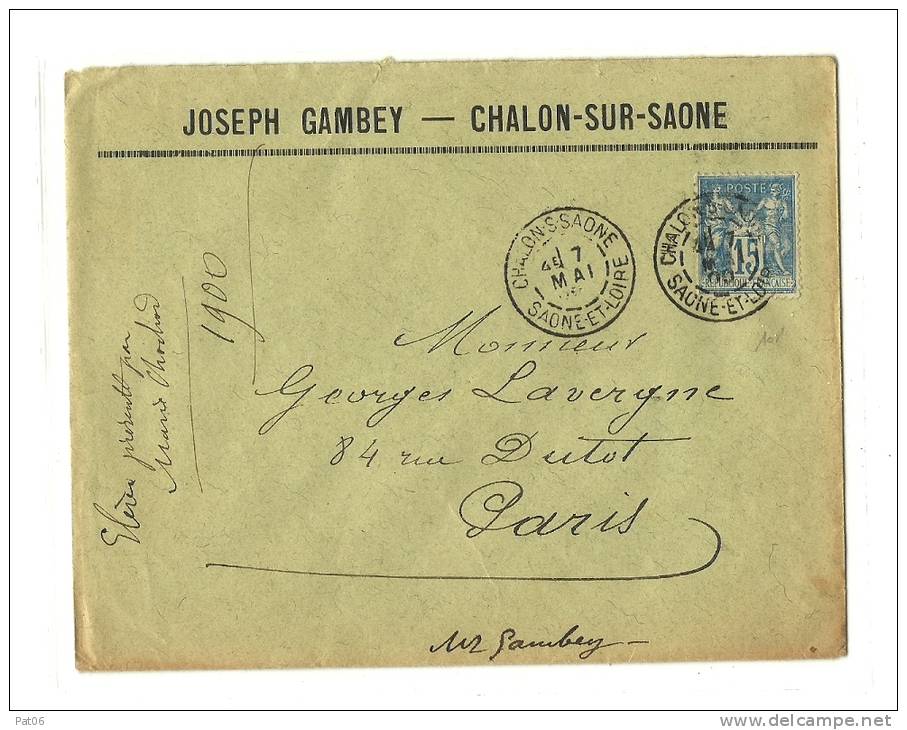 JOSEPH GAMBEY — CHALON-SUR-SAONE
POSTE
15
CHALON-S-SAONE
4E 7
MAI
SAONE-ET-LOIRE
CHALON
SAONE-ET-LOIR
Monsieur
Georges Lavergne
84 rue Dutot
Paris
Mr Gambey
présenté par
Marie
1900
Pat06
www.delcampe.net